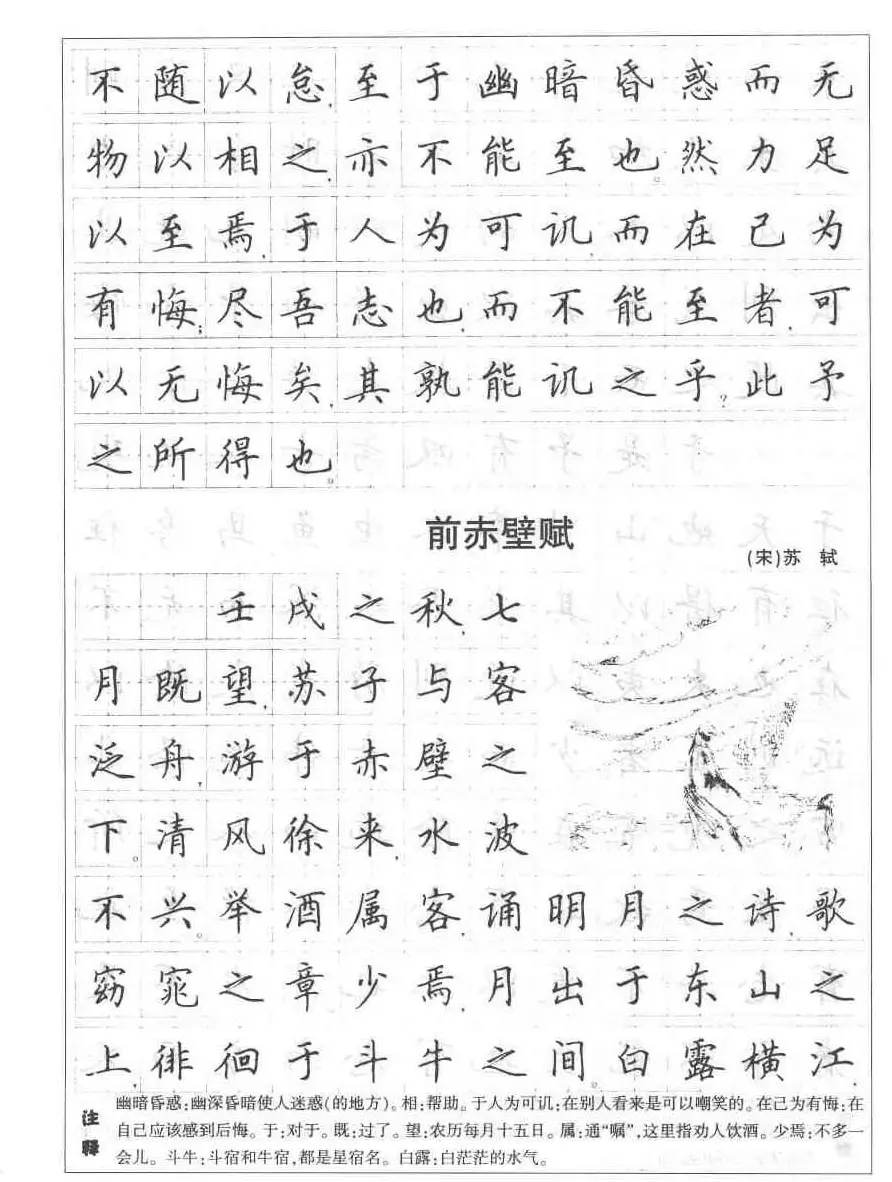 不随以怠,至于幽暗昏惑而无
物以相之,亦不能至也。然力足
以至焉,于人为可讥,而在己为
有悔;尽吾志也,而不能至者,可
以无悔矣,其孰能讥之乎?此予
之所得也。
前赤壁赋
(宋)苏 轼
壬戌之秋,七
月既望,苏子与客
泛舟,游于赤壁之
下。清风徐来,水波
不兴。举酒属客,诵明月之诗,歌
窈窕之章。少焉,月出于东山之
上,徘徊于斗牛之间。白露横江,
注释
幽暗昏惑:幽深昏暗使人迷惑(的地方)。相:帮助。于人为可讥:在别人看来是可以嘲笑的。在己为有悔:在
自己应该感到后悔。于:对于。既:过了。望:农历每月十五日。属:通“嘱”,这里指劝人饮酒。少焉:不多一
会儿。斗牛:斗宿和牛宿,都是星宿名。白露:白茫茫的水气。